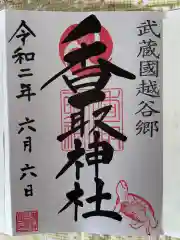 武蔵國越谷郷
香取神社
令和二年 六月六日